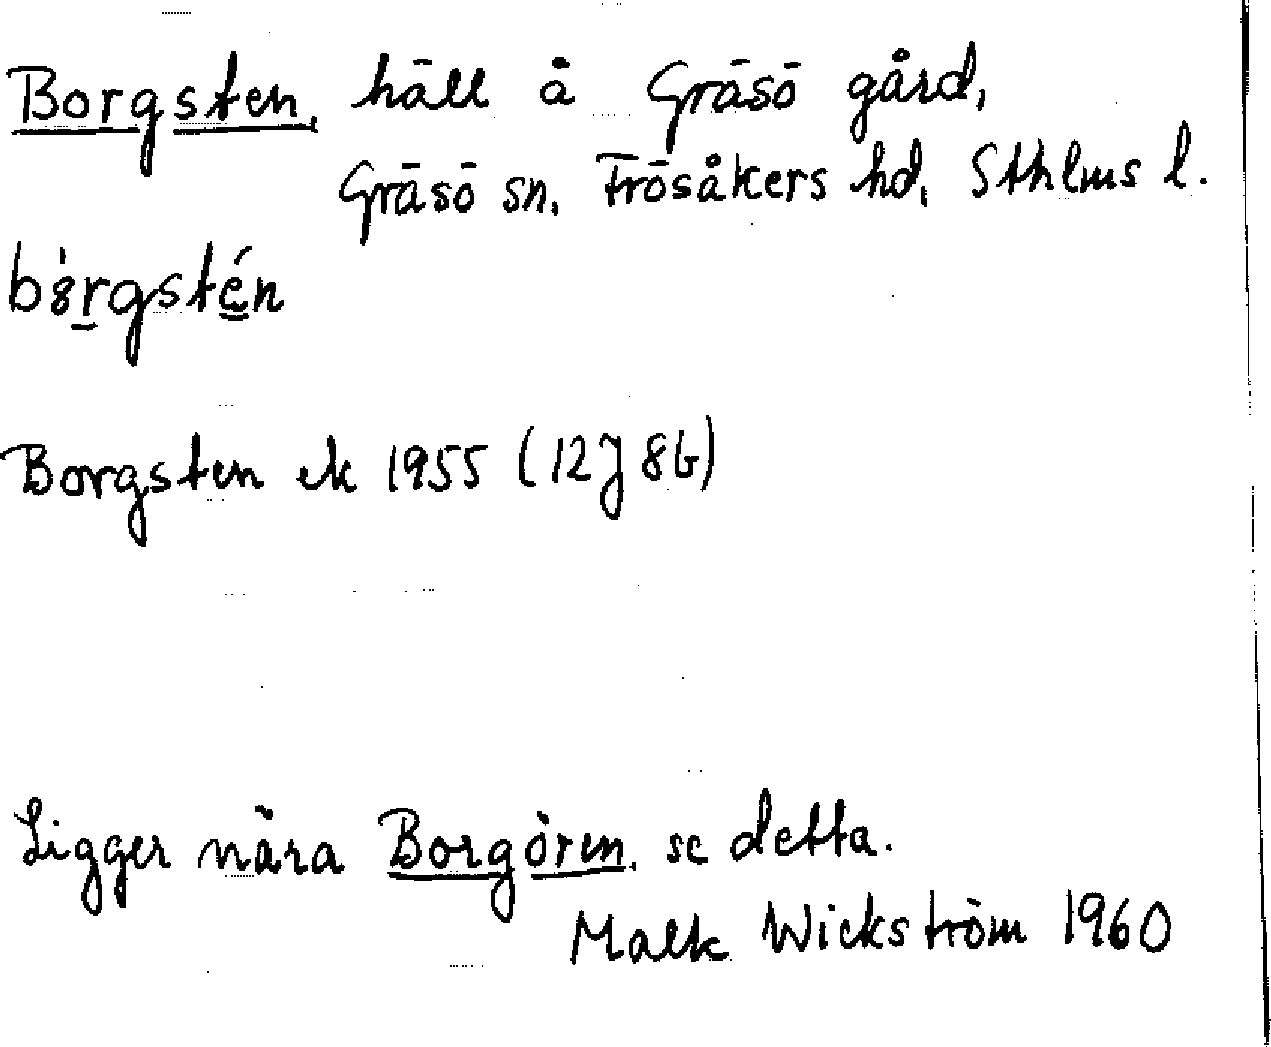 Borgsten, häll å Gräsö gård,
Gräsö sn, Frösåkers hd, Sthlms l.
Borgsten ek 1955 (12J 8b)
Ligger nära Borgören, se detta.
Wickström 1960